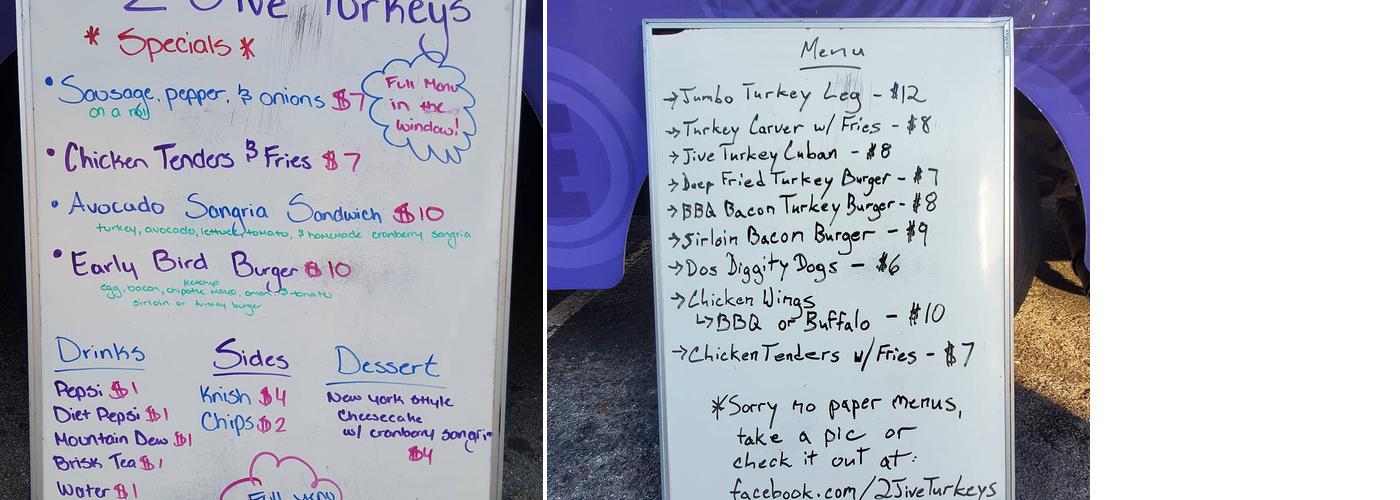 2 Jive Turkeys
* Specials *
• Sausage, pepper, & onions $7
on a roll
Full Menu
in the
window!
• Chicken Tenders & Fries $7
• Avocado Sangria Sandwich $10
turkey, avocado, lettuce, tomato, & homemade cranberry sangria
• Early Bird Burger $10
ketchup
egg, bacon, chipotle mayo, onion, & tomato
sirloin or turkey burger
Drinks
Pepsi $1
Diet Pepsi $1
Mountain Dew $1
Brisk Tea $1
Water $1
Sides
Knish $4
Chips $2
Dessert
New York Style
Cheesecake
w/ cranberry sangria
$4
Full Menu
Menu
→ Jumbo Turkey Leg - $12
→ Turkey Carver w/ Fries - $8
→ Jive Turkey Cuban - $8
→ Deep Fried Turkey Burger - $7
→ BBQ Bacon Turkey Burger - $8
→ Sirloin Bacon Burger - $9
→ Dos Diggity Dogs - $6
→ Chicken Wings
↳ BBQ or Buffalo - $10
→ Chicken Tenders w/ Fries - $7
* Sorry no paper menus,
take a pic or
check it out at:
facebook.com/2JiveTurkeys